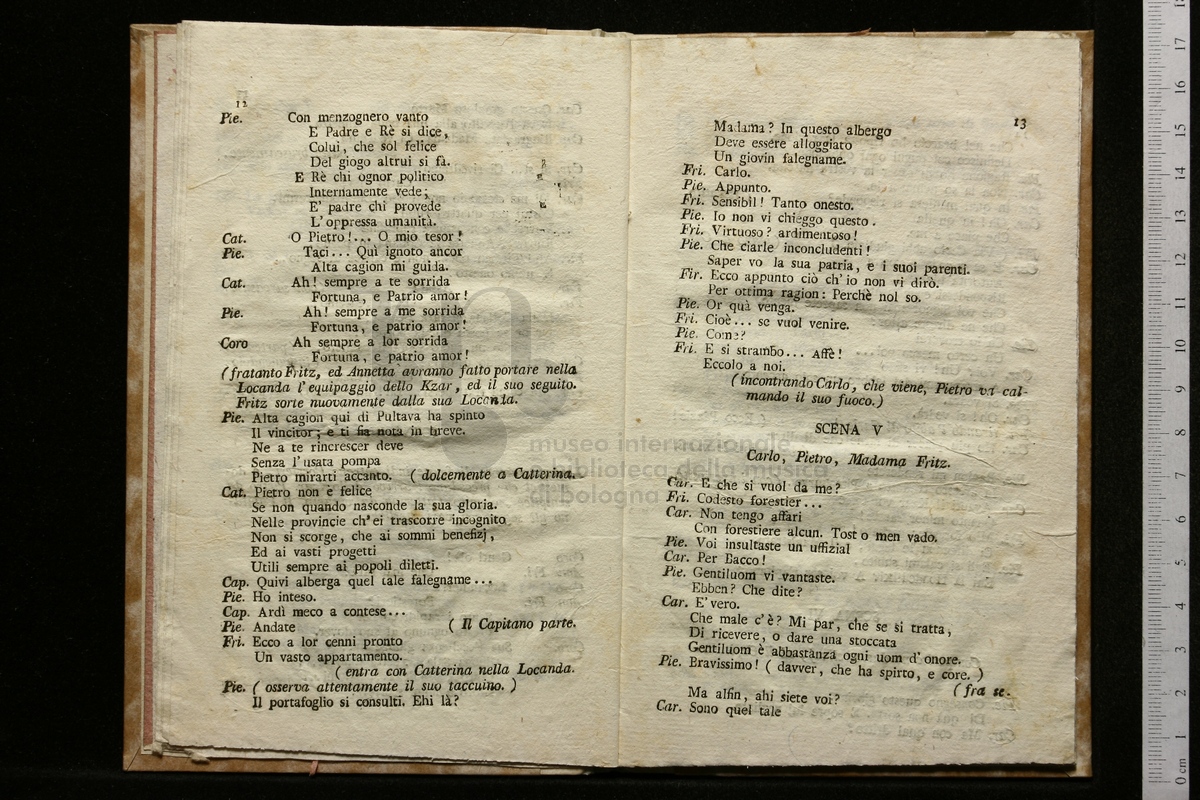 12
Pie. Con menzognero vanto
E Padre e Rè si dice,
Colui, che sol felice
Del giogo altrui si fà.
E Rè chi ognor politico
Internamente vede;
E' padre chi provede
L'oppressa umanità.
Cat. O Pietro!... O mio tesor!
Pie. Taci... Quì ignoto ancor
Alta cagion mi guida.
Cat. Ah! sempre a te sorrida
Fortuna, e Patrio amor!
Pie. Ah! sempre a me sorrida
Fortuna, e patrio amor!
Coro Ah sempre a lor sorrida
Fortuna, e patrio amor!
(fratanto Fritz, ed Annetta avranno fatto portare nella
Locanda l'equipaggio dello Kzar, ed il suo seguito.
Fritz sorte nuovamente dalla sua Locanta.
Pie. Alta cagion qui di Pultava ha spinto
Il vincitor; e ti fia nota in breve.
Ne a te rincrescer deve
Senza l'usata pompa
Pietro mirarti accanto. (dolcemente a Catterina.
Cat. Pietro non è felice
Se non quando nasconde la sua gloria.
Nelle provincie ch'ei trascorre incognito
Non si scorge, che ai sommi benefizj,
Ed ai vasti progetti
Utili sempre ai popoli diletti.
Cap. Quivi alberga quel tale falegname...
Pie. Ho inteso.
Cap. Ardì meco a contese...
Pie. Andate (Il Capitano parte.
Fri. Ecco a lor cenni pronto
Un vasto appartamento.
(entra con Catterina nella Locanda.
Pie. (osserva attentamente il suo taccuino.)
Il portafoglio si consulti. Ehi là?
13
Madama? In questo albergo
Deve essere alloggiato
Un giovin falegname.
Fri. Carlo.
Pie. Appunto.
Fri. Sensibil! Tanto onesto.
Pie. Io non vi chieggo questo.
Fri. Virtuoso? ardimentoso!
Pie. Che ciarle inconcludenti!
Saper vo la sua patria, e i suoi parenti.
Fir. Ecco appunto ciò ch'io non vi dirò.
Per ottima ragion: Perchè nol so.
Pie. Or quà venga.
Fri. Cioè... se vuol venire.
Pie. Come?
Fri. E si strambo... Affè!
Eccolo a noi.
(incontrando Carlo, che viene, Pietro va cal-
mando il suo fuoco.)
SCENA V
Carlo, Pietro, Madama Fritz.
Car. E che si vuol da me?
Fri. Codesto forestier...
Car. Non tengo affari
Con forestiere alcun. Tosto men vado.
Pie. Voi insultaste un uffizial
Car. Per Bacco!
Pie. Gentiluom vi vantaste.
Ebben? Che dite?
Car. E' vero.
Che male c'è? Mi par, che se si tratta,
Di ricevere, o dare una stoccata
Gentiluom è abbastanza ogni uom d'onore.
Pie. Bravissimo! (davver, che ha spirto, e core.)
(fra se.
Ma alfin, ahi siete voi?
Car. Sono quel tale
museo internazionale
biblioteca della musica
di bologna